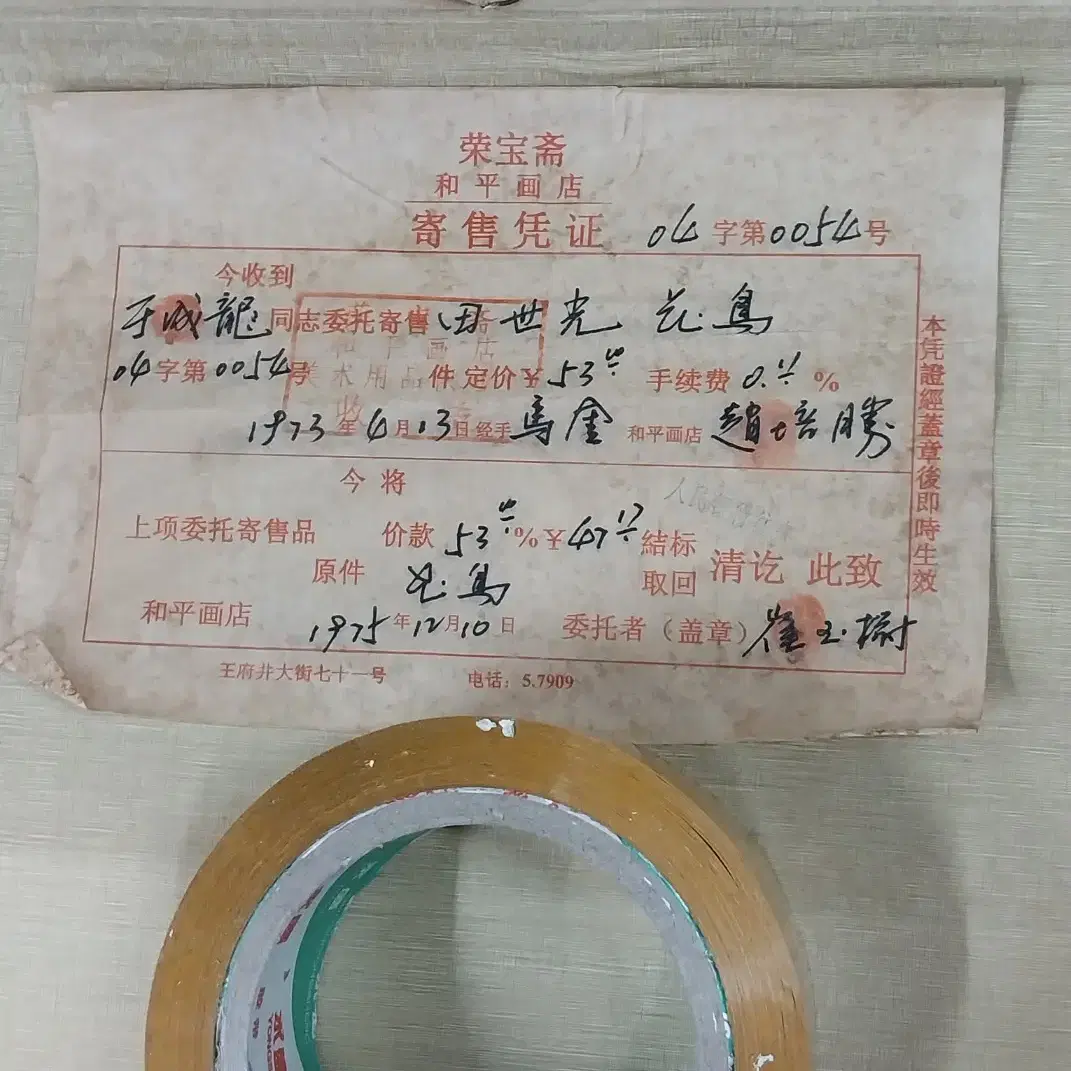 荣宝斋
和平画店
寄售凭证 04字第0054号
今收到
于成龍同志委托寄售田世光 花鸟
04字第0054号 件 定价¥53 手续费0.11%
1973年4月13日 经手 馬金 和平画店 趙培勝
和平画店
美术用品
收
今将
上项委托寄售品 价款53 %¥47.17 結标
原件 花鸟 取回 清讫 此致
和平画店 1975年12月10日 委托者（盖章）崔玉树
王府井大街七十一号 电话：5.7909
本凭證經蓋章後即時生效